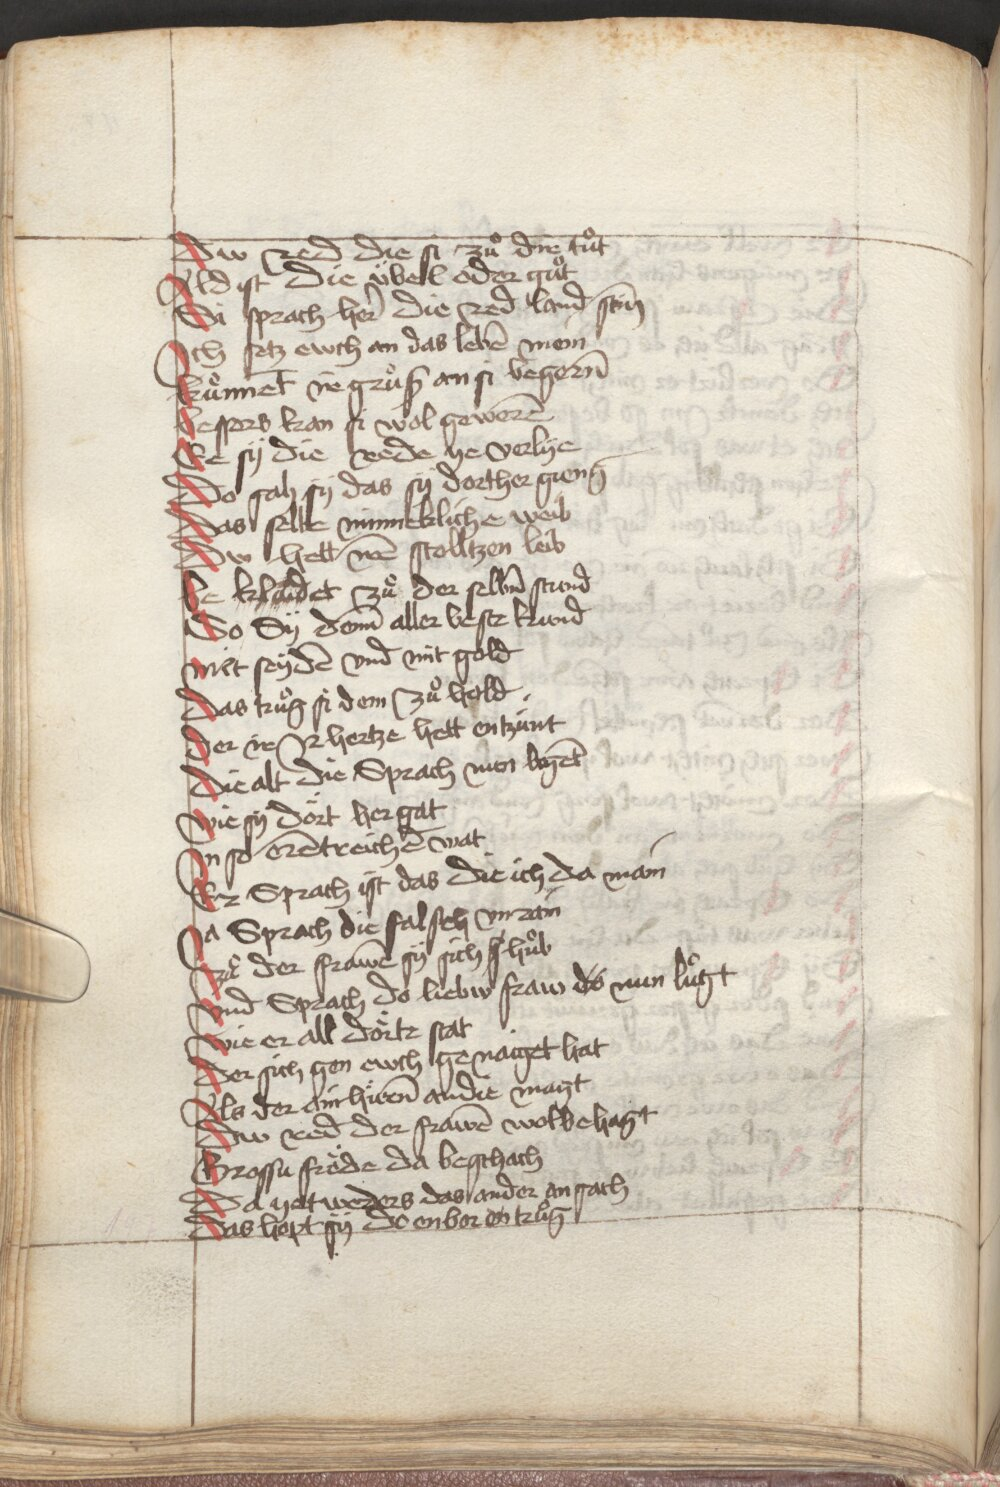 Dw red die si zuͦ dir tuͦt
Ald ist die ybell oder guͦt
Si sprach her die red land sten̄
Ich setz ewch an das lebē mein
kuͦnnet ir gruͦß an si begern̄
bessers kan si wol gewerē
Ee sy die rede ye verlye
Do sah sy das sy dorther gieng
Das selbe minnekliche weib
Dw hett irē stolltzen leib
be klaidet zuͦ der selbn̄ stund
So Sy denn̄ aller beste kund
mitt seydē vnd mit gold
Das truͦg si dem zuͦ hold
Der ir Ir hertze hett entzunt
Die alt die Sprach nun
wie sy dört her gat
In so erentreichē wat
Er Sprach ist das die ich da main
Ja Sprach die falsch vnrain
zuͦ der frawē sy sich huͦb
vnd Sprach do liebw fraw do nun luͦgt
wie er all dörtt stat
Der sich gen ewch genaiget hat
Als der ainhürn̄ an die magt
Dw red der frawē wol behagt
Grossu fröde da beschach
Da yetweders das ander an sach
Das hopt sy do enbor truͦg